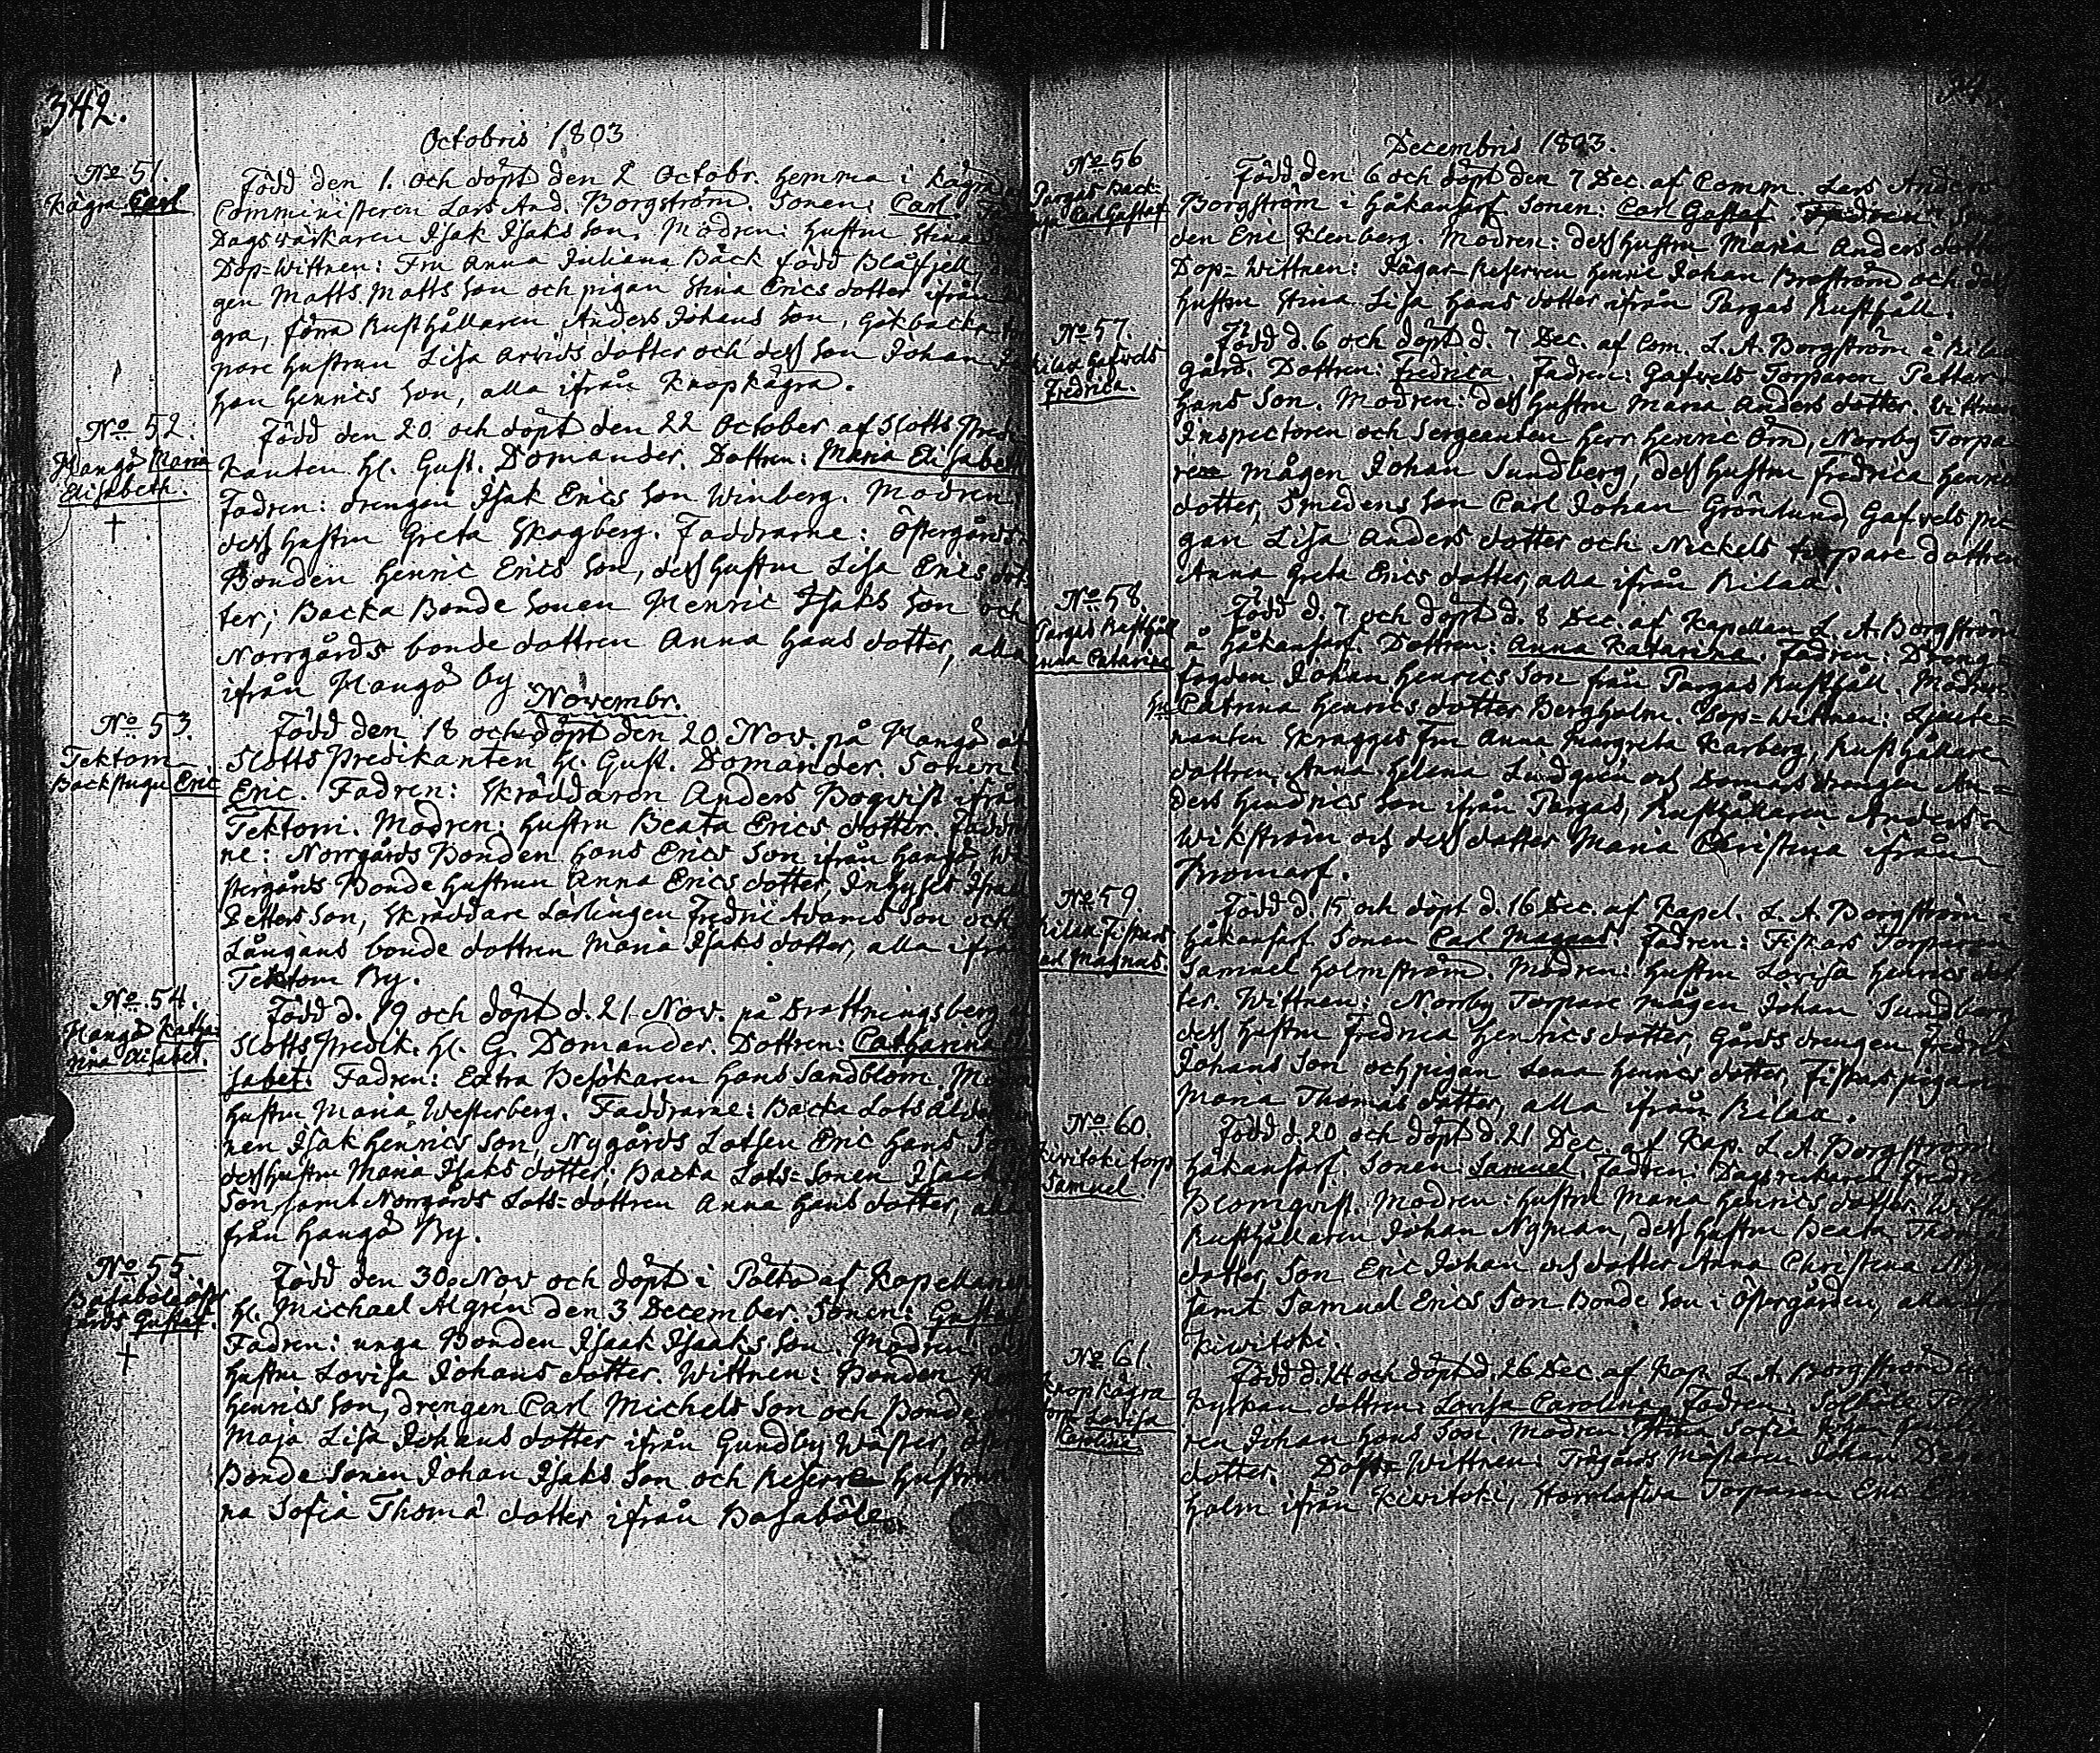 342.
Octobris 1803
No 51.
Kågra Carl
Född den 1. och döpt den 2 Octobr. hemma i Kågra
Comministeren Lars And. Borgström. Sonen: Carl.
Dagswärkaren Isak Isaks Son. Modren: Hustru Stina
Dop-Wittnen: Fru Anna Juliana Bäck född Blåfjell,
gen Matts Matts Son och pigan Stina Erics dotter ifrån
gra, förra Rusthållaren Anders Johans Son, Gökbacka
pare hustrun Lisa Arvids dotter och dess Son Johan
han Henrics Son, alla ifrån Knopkågra.
No 52.
Hangö Maria
Elisabeth.
†
Född den 20 och döpt den 22 October af Slotts Predi
kanten Hl. Gust. Domander. Dottren: Maria Elisabeth
Fadren: drengen Isak Erics Son Winberg. Modren
dess Hustru Greta Skagberg. Faddrarne: Östergårds
Bonden Henric Erics Son, dess Hustru Lisa Erics dot
ter; Backa Bonde Sonen Henric Isaks Son och
Norrgårds bonde dottren Anna Hans dotter, alla
ifrån Hangö By
Novembr.
No 53.
Tektom
Backstugu Eric
Född den 18 och döpt den 20 Nov. på Hangö af
Slotts Predikanten Hl. Gust. Domander. Sonen
Eric. Fadren: Skräddaren Anders Boqvist ifrån
Tektom. Modren: Hustru Beata Erics dotter. Faddr
ne: Norrgårds Bonden Hans Erics Son ifrån Hangö We
stergårds Bonde Hustrun Anna Erics dotter, Inhyses
Petters Son, Skräddare Lärlingen Fredric Adams Son och
Långans bonde dottren Maria Isaks dotter, alla ifrån
Tektom By.
No 54.
Hangö Katha-
rina Elisabet.
Född d. 19 och döpt d. 21 Nov. på Drottningsberg
Slotts Predik. Hl. G. Domander. Dottren: Catharina
sabet. Fadren: Extra Besökaren Hans Sandblom.
Hustru Maria Westerberg. Faddrarne: Backa Lots Ålder
nen Isak Henrics Son, Nygårds Lotsen Eric Hans Son
dess Hustru Maria Isaks dotter; Backa Lots-Sonen Isaac
Son samt Norrgårds Lots-dottren Anna Hans dotter,
från Hangö By.
No 55.
Basaböle öster
gårds Gustaf.
†
Född den 30 Nov och döpt i Påltö af Kapellanen
Hl. Michael Algrén den 3 December. Sonen: Gustaf
Fadren: unga Bonden Isaak Isaaks Son. Modren
Hustru Lovisa Johans dotter. Wittnen: Bonden
Henrics Son, drengen Carl Michels Son och Bonde
Maja Lisa Johans dotter ifrån Gundby Wäster,
Bonde Sonen Johan Isaks Son och Reserve Hustrun
na Sofia Thoma dotter ifrån Basaböle.
Decembris 1803.
No 56
Pargas Back-
Carl Gustaf
Född den 6 och döpt den 7 Dec. af Comm. Lars Anders
Borgström i Håkansarf. Sonen: Carl Gustaf. Fadren:
den Eric Klenberg. Modren: dess Hustru Maria Anders dotter
Dop-Wittnen: Jägar-Reserven Henric Johan Broström och dess
Hustru Stina Lisa Hans dotter ifrån Pargas Rusthåll.
No 57
Rilax Gafvels
Fredrica.
Född d. 6 och döpt d. 7 Dec. af Com. L. A. Borgström å Rilax
gård. Dottren: Fredrica. Fadren: Gafvels Torparen Petter
Hans Son. Modren: dess Hustru Maria Anders dotter. Wittnen
Inspectoren och Sergeanten Herr Henric Örn, Norrby Torpa
re mågen Johan Sundberg, dess Hustru Fredrica Henrics
dotter, Smedens Son Carl Johan Grönlund, Gafvels pi
gan Lisa Anders dotter och Nickels torpare dottren
Anna Greta Erics dotter, alla ifrån Rilax.
No 58.
Pargas Rusthåll
Anna Catarina
Född d. 7 och döpt d. 8 Dec. af Kapellan L. A. Borgström
å Håkansarf. Dottren: Anna Katarina. Fadren: Dreng-
fogden Johan Henrics Son från Pargas Rusthåll. Modren
Hu Catrina Henrics dotter Bergholm. Dop-Wittnen: Ljeute-
nanten Skragges Fru Anna Margreta Karberg, Rusthållare
dottren Anna Helena Lindquén och drengen An-
ders Hendrics Son ifrån Pargas, Rusthållaren Anders
Wikström och dess dotter Maria Christina ifrån
Bromarf.
No 59
Rilax Fiskars
Carl Magnus.
Född d. 15 och döpt d. 16 Dec. af Kapel. L. A. Borgström i
Håkansarf. Sonen Carl Magnus. Fadren: Fiskars Torparen
Samuel Holmström. Modren: Hustru Lovisa Henrics dot
ter. Wittnen: Norrby Torpare mågen Johan Sundberg
dess Hustru Fredrica Henrics dotter, Gårds drengen Fredric
Johans Son och pigan Lena Henrics dotter, Fiskars pigan
Maria Thomas dotter, alla ifrån Rilax.
No 60.
Kivitoki torp
Samuel
Född d. 20 och döpt d. 21 Dec. af Kap. L. A. Borgström
Håkansarf. Sonen: Samuel. Fadren: Dagsverkaren Fredric
Blomqvist. Modren: Hustru Maria Henrics dotter.
Rusthållaren Johan Nyman, dess Hustru Beata Thomas
dotter, Son Eric Johan och dotter Anna Christina
samt Samuel Erics Son Bonde Son i Östergården,
Kiwitoki.
No 61.
Knopkågra
Lovisa
Carolina.
Född d. 24 och döpt d. 26 Dec af Kap. L. A. Borgström
Kyrkan dottren: Lovisa Carolina. Fadren: Solböle Torpa
ren Johan Hans Son. Modren: Sofia
dotter. Dop-Wittnen: Trägårds Mästaren Johan
holm ifrån Kiwitoki, Torparen Eric